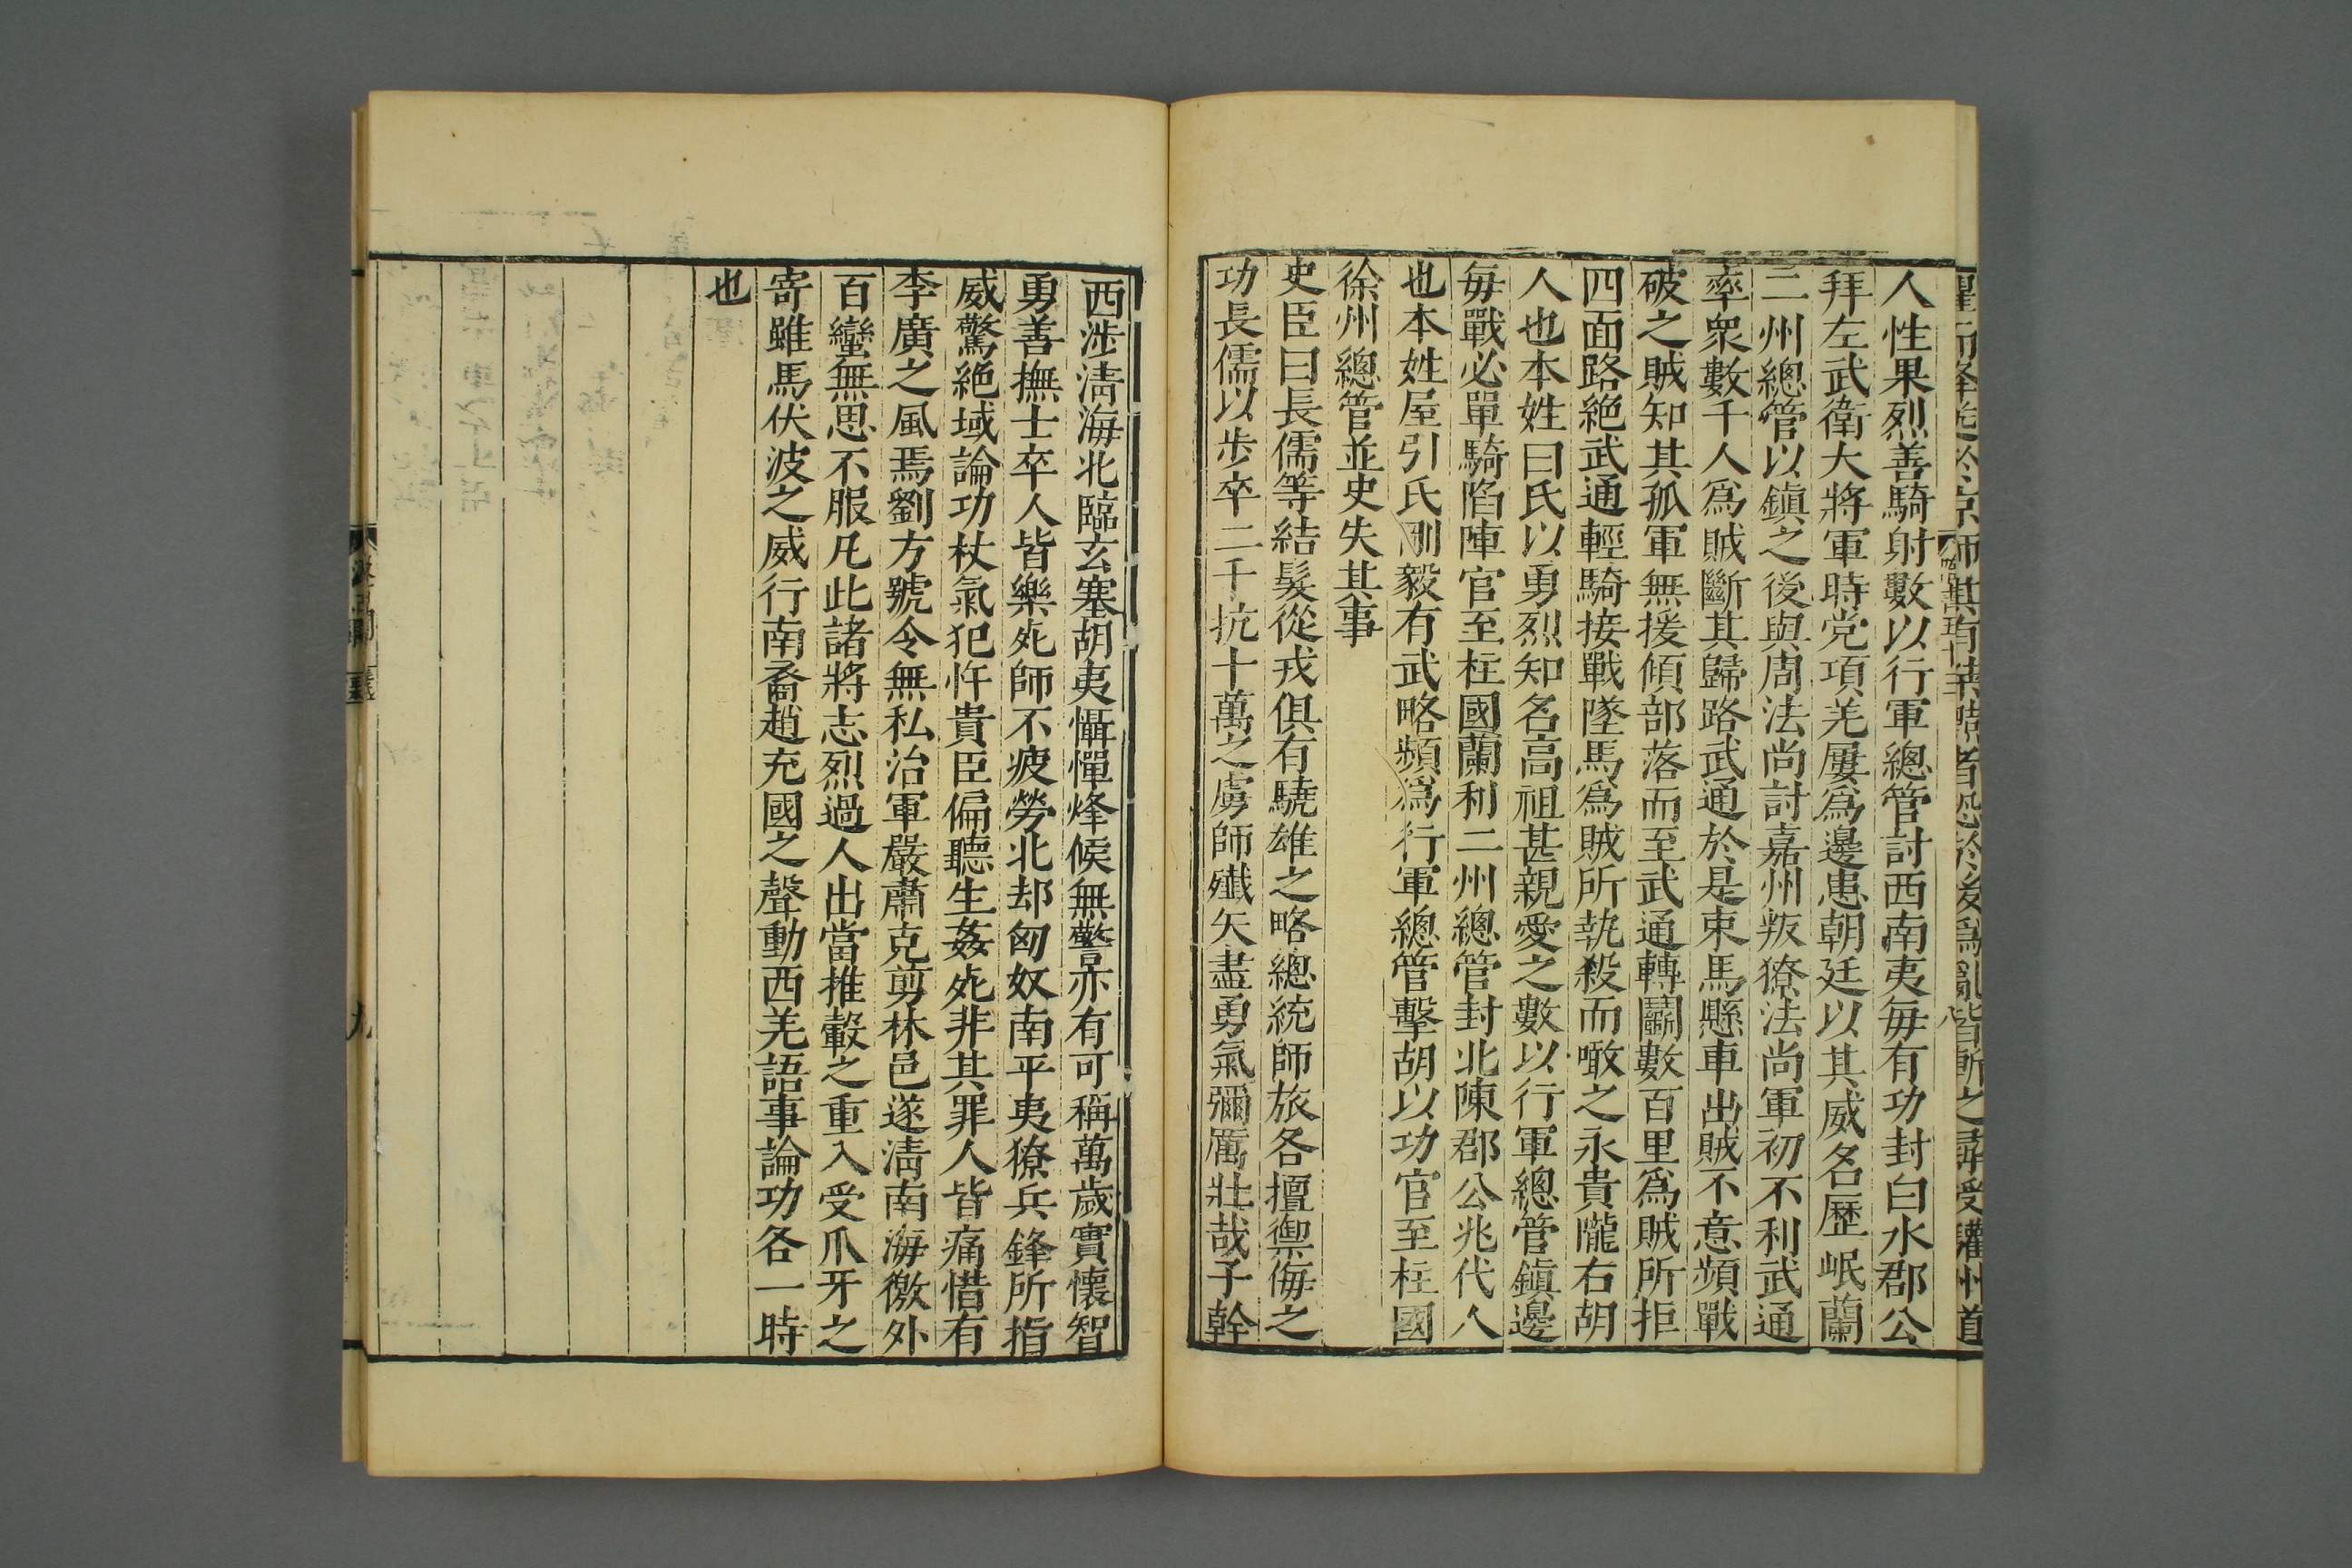 人性果烈善騎射數以行軍總管討西南夷每有功封白水郡公
拜左武衛大將軍時党項羌屢爲邊患朝廷以其威名歷岷蘭
二州總管以鎮之後與周法尚討嘉州叛獠法尚軍初不利武通
率衆數千人爲賊斷其歸路武通於是束馬懸車出賊不意頻戰
破之賊知其孤軍無援傾部落而至武通轉鬬數百里爲賊所拒
四面路絶武通輕騎接戰墜馬爲賊所執殺而噉之永貴隴右胡
人也本姓曰氏以勇烈知名高祖甚親愛之數以行軍總管鎮邊
每戰必單騎陷陣官至柱國蘭利二州總管封北陳郡公兆代人
也本姓屋引氏剛毅有武略頻爲行軍總管擊胡以功官至柱國
徐州總管並史失其事
史臣曰長儒等結髮從戎俱有驍雄之略總統師旅各擅禦侮之
功長儒以步卒二千抗十萬之虜師殲矢盡勇氣彌厲壯哉子幹
西涉清海北臨玄塞胡夷懾憚烽候無警亦有可稱萬歲實懷智
勇善撫士卒人皆樂死師不疲勞北却匈奴南平夷獠兵鋒所指
威驚絶域論功杖氣犯忤貴臣偏聽生姦死非其罪人皆痛惜有
李廣之風焉劉方號令無私治軍嚴肅克剪林邑遂清南海徼外
百蠻無思不服凡此諸將志烈過人出當推轂之重入受爪牙之
寄雖馬伏波之威行南裔趙充國之聲動西羌語事論功各一時
也
九